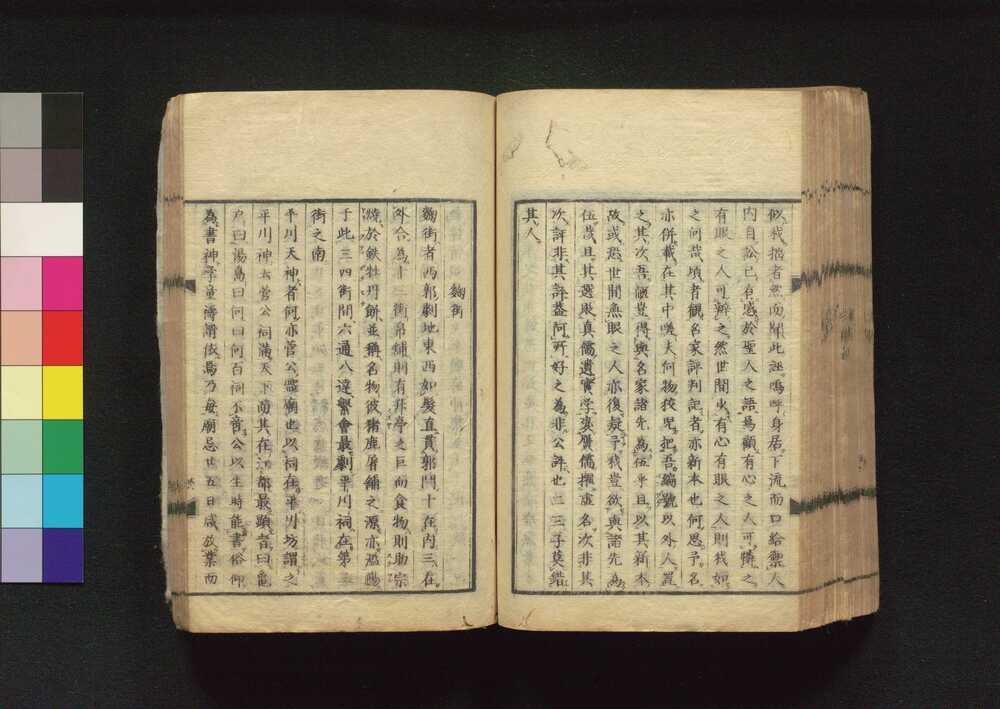 似我揣者然而陳此誣嗚呼身居下流而口給禦人
内自訟已有感於聖人之語焉顧有心之人可憐之
有眼之人可辨之然世間少有心有眼之人則我如
之何哉頃者觀名家評判記者亦新本也何思予名
亦併載在其中嗟夫何物狡兒把吾編號以外人置
之其次吾儕豈得與名家諸先為伍乎且以其新本
故或恐世間無眼之人亦復疑予我豈欲與諸先為
伍哉且其選敗真儒遺實学褒贋儒撰虚名次非其
次評非其評蓋阿所好之為非公評也二三子莫錯
其人
麴街
麴街者西郭劇地東西如髮直貫郭門十在内三在
外合為十三街帛舗則有升亭之巨而食物則助宗
於鉄牡丹餅並稱名物彼猪鹿屠舗之源亦濫觴
于此三四街間六通八達繋會最劇平川祠在第三
街之南
平川天神者何亦菅公靈廟也以祠在平川坊謂之
平川神云菅公祠滿天下而其在江都最顕者曰亀
戸曰湯島曰何曰何百祠不啻公以生時能書俗仰
為書神学童濤謂依焉乃毎廟忌廿五日咸放業而